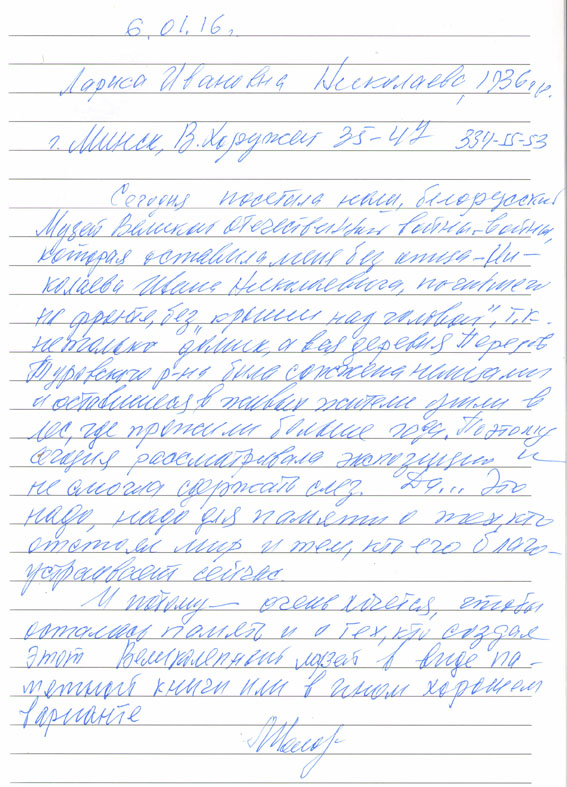 6.01.16 г.
Лариса Ивановна Николаева, 1936 г.р.
г. Минск, В. Хоружей 35-47 334-55-53
Сегодня посетила наш, белорусский
Музей Великой отечественной войны – войны,
которая оставила меня без отца – Ни-
колаева Ивана Николаевича, погибшего
на фронте, без „крыши над головой", т.к.
не только домик, а вся деревня Перезов
Туровского р-на была сожжена немцами
и оставшиеся в живых жители ушли в
лес, где прожили больше года. Поэтому
сегодня рассматривала экспозицию и
не смогла сдержать слез. Да... Это
надо, надо для памяти о тех, кто
отстоял мир и тем, кто его благо-
устраивает сейчас.
И потому – очень хочется, чтобы
осталась память и о тех, кто создал
этот Великолепный музей в виде па-
мятной книги или в ином хорошем
варианте